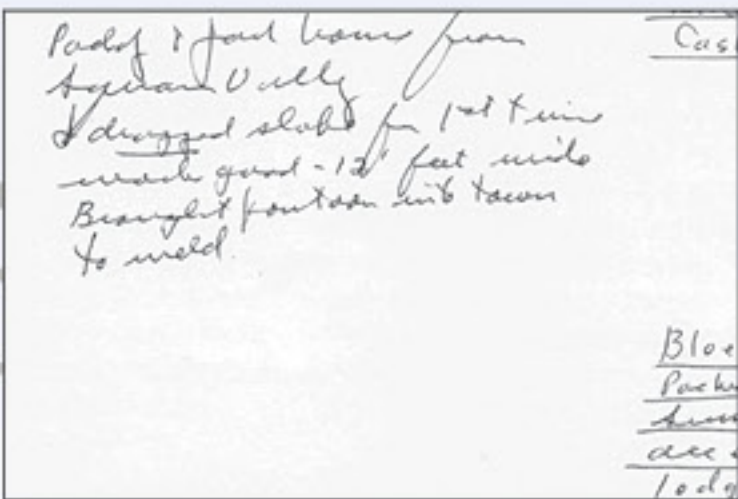 Paddy & Joad home from
Squaw Vally
I dragged slabs for 1st time
work good - 12' feet wide
Brought pontoon into town
to weld.
Cas
Bloe
Pack
dec
lodg